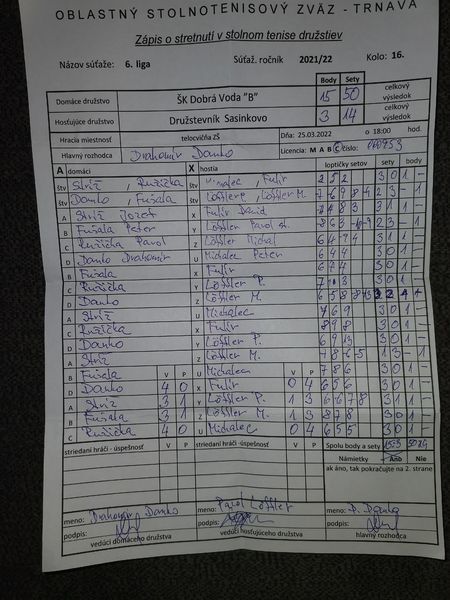 OBLASTNÝ STOLNOTENISOVÝ ZVÄZ - TRNAVA
Zápis o stretnutí v stolnom tenise družstiev
Názov súťaže: 6. liga Súťaž. ročník 2021/22 Kolo: 16.
Body Sety celkový výsledok
Domáce družstvo ŠK Dobrá Voda "B" 15 50
Hosťujúce družstvo Družstevník Sasinkovo 3 14 celkový výsledok
Hracia miestnosť telocvičňa ZŠ Dňa: 25.03.2022 o 18:00 hod.
Hlavný rozhodca Drahomír Danko Licencia: M A B C číslo:
A domáci X hostia loptičky setov sety body
štv Stríž, Ružička Michalec, Fulir 3 0 1 -
štv Danko, Fušala Löffler P., Löffler M. 2 3 - 1
A Stríž Jozef X Fulir David 3 1 1 -
B Fušala Peter Y Löffler Pavol st. 2 3 - 1
C Ružička Pavol Z Löffler Michal 6 4 9 4 3 1 1 -
D Danko Drahomír U Michalec Peter 6 4 4 3 0 1 -
B Fušala X Fulir 6 7 4 3 0 1 -
C Ružička Y Löffler P. 3 0 1 -
D Danko Z Löffler M.
A Stríž U Michalec 3 0 1 -
C Ružička X Fulir 8 9 8 3 0 1 -
D Danko Y Löffler P. 3 0 1 -
A Stríž Z Löffler M. 1 3 - 1
B Fušala V P U Michalec V P 7 8 6 3 0 1 -
D Danko 4 0 X Fulir 0 4 6 5 6 3 0 1 -
A Stríž 3 1 Y Löffler P. 1 3 3 1 1 -
B Fušala 3 1 Z Löffler M. 1 3 8 7 8 3 0 1 -
C Ružička 4 0 U Michalec 0 4 6 5 5 3 0 1 -
striedaní hráči - úspešnosť V P striedaní hráči -úspešnosť V P Spolu body a sety
Námietky Áno Nie
ak áno, tak pokračujte na 2. strane
meno: Drahomír Danko meno: Pavol Löffler meno: D. Danko
podpis: podpis: podpis:
vedúci domáceho družstva vedúci hosťujúceho družstva hlavný rozhodca